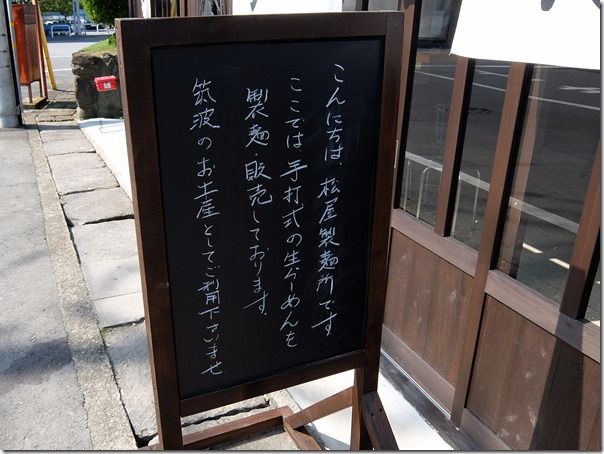 こんにちは、松屋製麺所です
ここでは手打式の生らーめんを
製麺・販売しております。
筑波のお土産としてご利用下さいませ